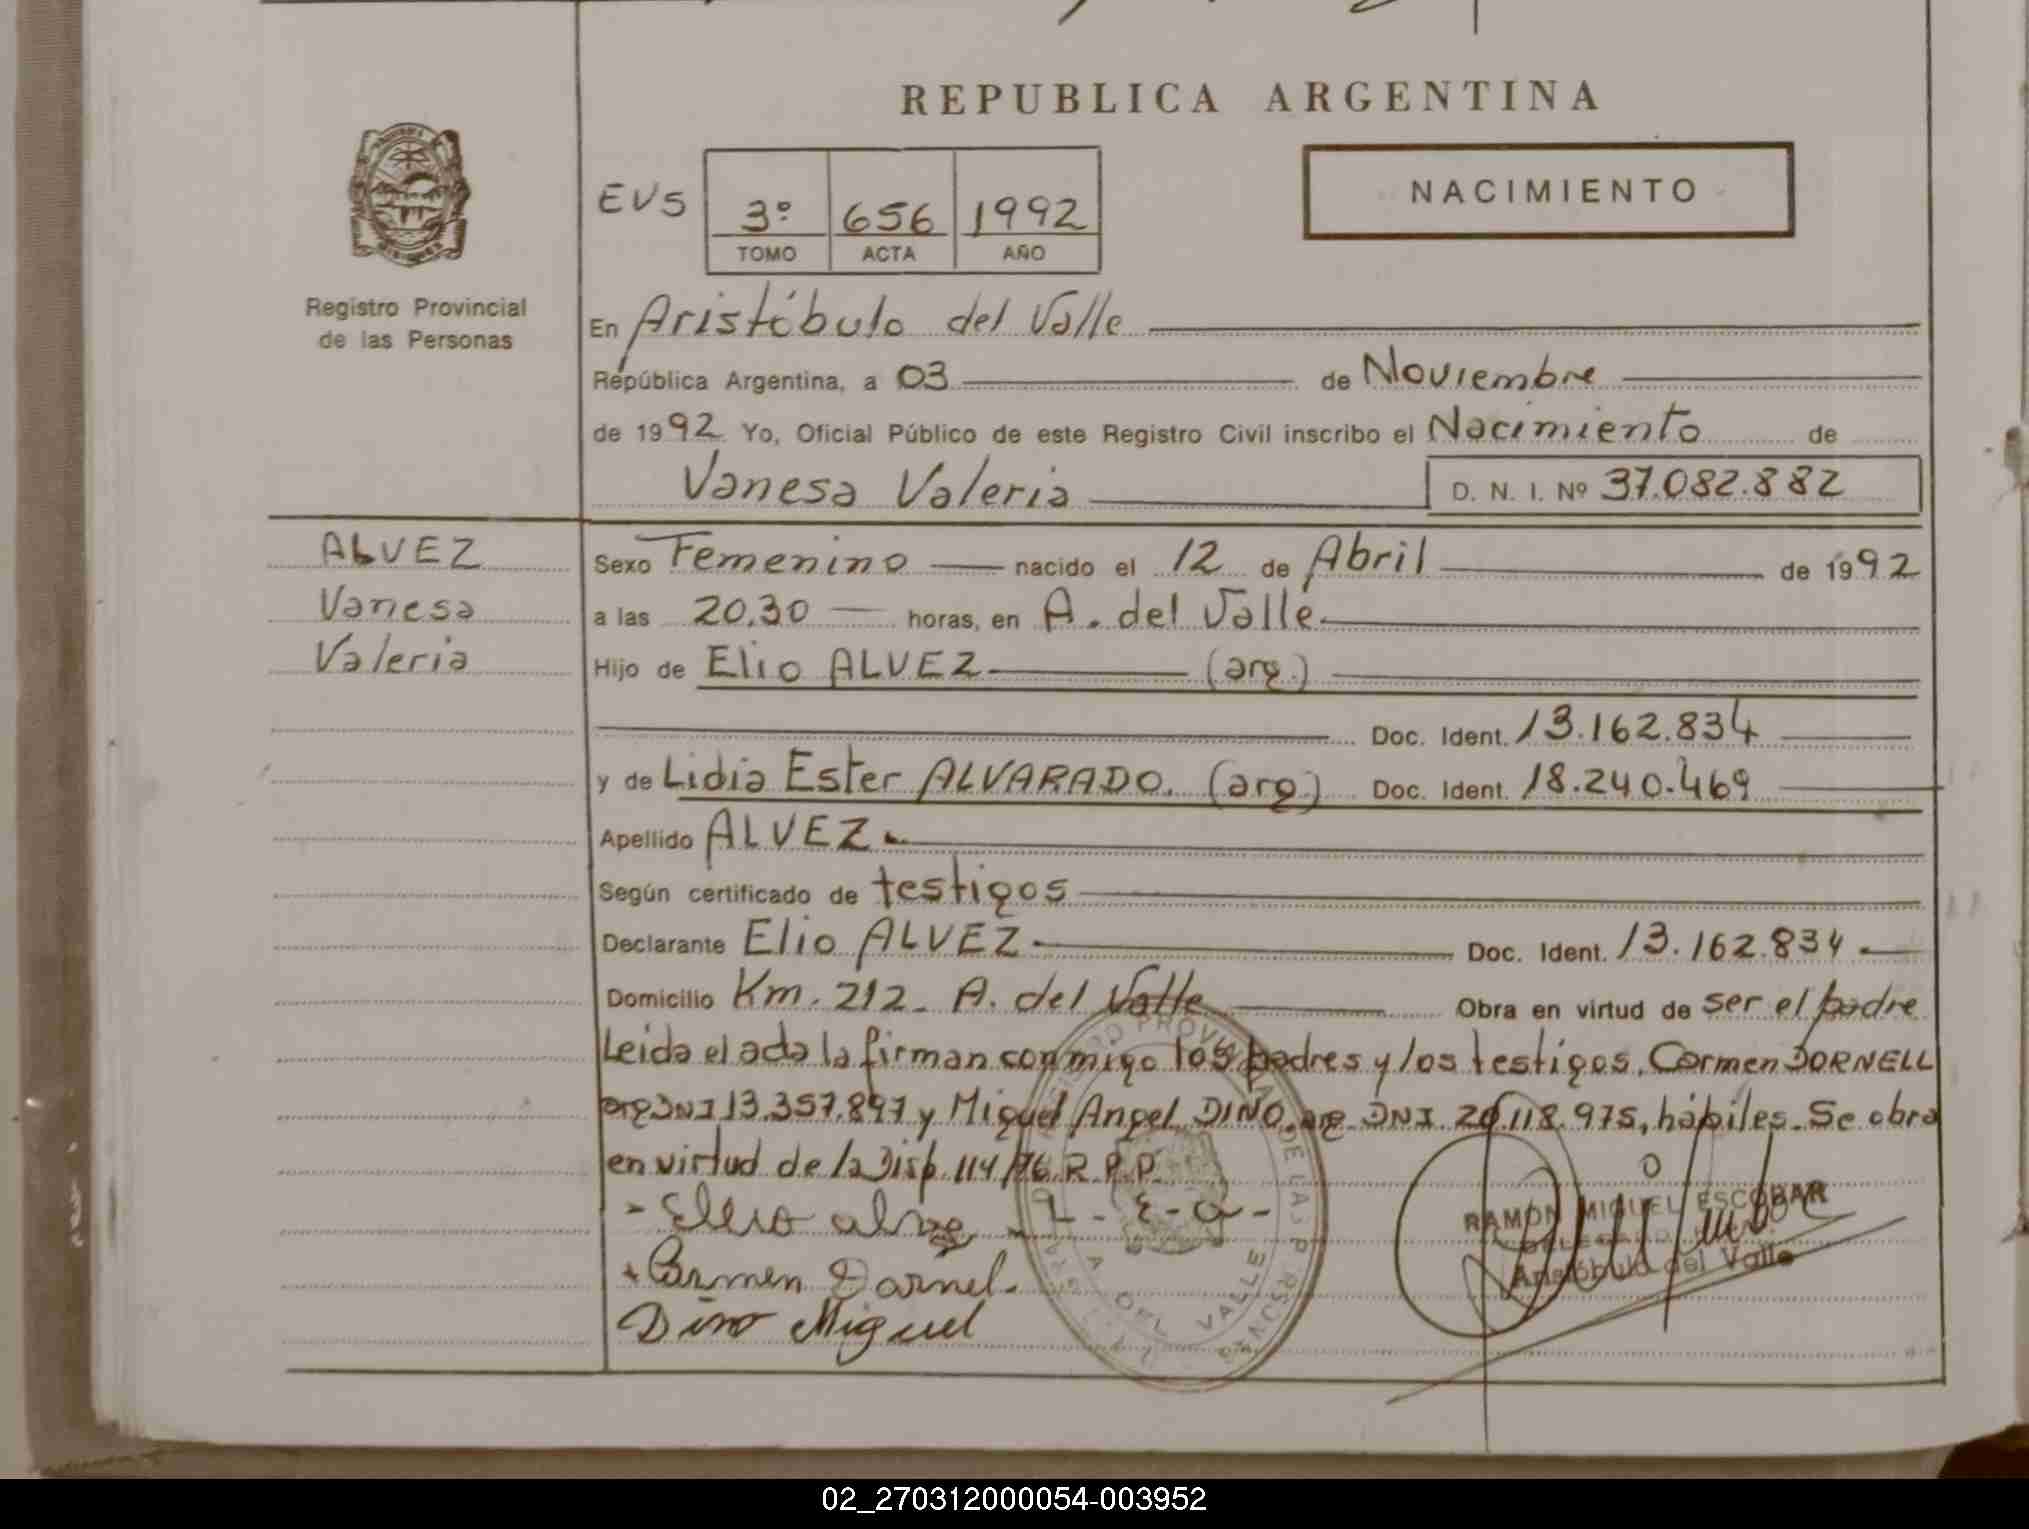 REPUBLICA ARGENTINA
NACIMIENTO
EVS 3º 656 1992
TOMO ACTA AÑO
Registro Provincial
de las Personas
En Aristóbulo del Valle
República Argentina, a 03 de Noviembre
de 1992 Yo, Oficial Público de este Registro Civil inscribo el Nacimiento de
Vanesa Valeria D. N. I. Nº 37.082.882
ALVEZ
Vanesa
Valeria
Sexo Femenino nacido el 12 de Abril de 1992
a las 20.30 horas, en A. del Valle
Hijo de Elio ALVEZ (arg.)
Doc. Ident. 13.162.834
y de Lidia Ester ALVARADO. (arg.) Doc. Ident. 18.240.469
Apellido ALVEZ
Según certificado de testigos
Declarante Elio ALVEZ Doc. Ident. 13.162.834
Domicilio Km. 212 - A. del Valle Obra en virtud de ser el padre
Leida el acta la firman conmigo los padres y los testigos. Carmen DORNELL
arg DNI 13.357.897 y Miguel Angel DINO. arg. DNI. 20.118.975, hábiles. Se obra
en virtud de la Disp. 114/76 R.P.P.
L - E - A -
Carmen Dornel.
Dino Miguel
RAMON MIGUEL ESCOBAR
DELEGADO
Aristóbulo del Valle
A. DEL VALLE
02_270312000054-003952